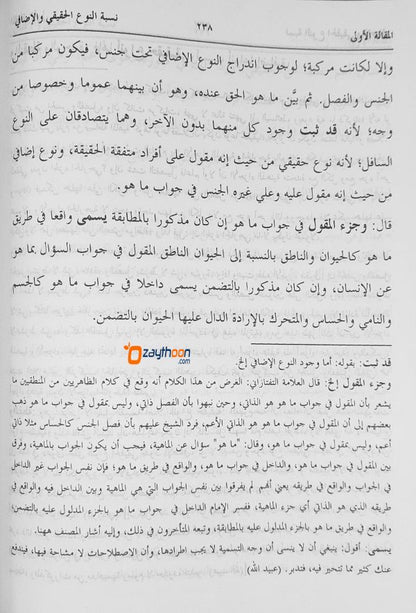 المقالة الأولى ٢٣٨ نسبة النوع الحقيقي والإضافي
وإلا لكانت مركبة؛ لوجوب اندراج النوع الإضافي تحت جنس، فيكون مركبا من
الجنس والفصل. ثم بيَّن ما هو الحق عنده، وهو أن بينهما عموما وخصوصا من
وجه؛ لأنه قد ثبت وجود كل منهما بدون الآخر، وهما يتصادقان على النوع
السافل؛ لأنه نوع حقيقي من حيث إنه مقول على أفراد متفقة الحقيقة، ونوع إضافي
من حيث إنه مقول عليه وعلى غيره الجنس في جواب ما هو.
قال: وجزء المقول في جواب ما هو إن كان مذكورا بالمطابقة يسمى واقعا في طريق
ما هو كالحيوان والناطق بالنسبة إلى الحيوان الناطق المقول في جواب السؤال بما هو
عن الإنسان، وإن كان مذكورا بالتضمن يسمى داخلا في جواب ما هو كالجسم
والنامي والحساس والمتحرك بالإرادة الدال عليها الحيوان بالتضمن.
zaythoon
.com
قد ثبت: بقوله: أما وجود النوع الإضافي إلخ.
وجزء المقول إلخ: قال العلامة التفتازاني: الغرض من هذا الكلام أنه وقع في كلام الظاهريين من المنطقيين ما
يشعر بأن المقول في جواب ما هو، هو الذاتي، وحين نبهوا بأن الفصل ذاتي، وليس بمقول في جواب ما هو ذهب
بعضهم إلى أن المقول في جواب ما هو، هو الذاتي الأعم، فرد الشيخ عليهم بأن فصل الجنس كالحساس مثلا ذاتي
أعم، وليس بمقول في جواب ما هو، وقال: "ما هو" سؤال عن الماهية، فيجب أن يكون الجواب بالماهية، وفرق
بين المقول في جواب ما هو، والداخل في جواب ما هو، والواقع في طريق ما هو؛ فإن نفس الجواب غير الداخل
في الجواب والواقع في طريقه يعني أنهم لم يفرقوا بين نفس الجواب التي هي الماهية وبين الداخل فيه والواقع في
طريقه الذي هو الذاتي أي جزء الماهية، ففسر الإمام الداخل في جواب ما هو بالجزء المدلول عليه بالتضمن،
والواقع في طريق ما هو بالجزء المدلول عليه بالمطابقة، وتبعه المتأخرون في ذلك، وإليه أشار المصنف ههنا.
يسمى: أقول: ينبغي أن لا ينسى أن وجه التسمية لا يجب اطرادها، وأن الاصطلاحات لا مشاحة فيها، فيندفع
عنك كثير مما تتحير فيه، فتدبر. (عبيد الله)